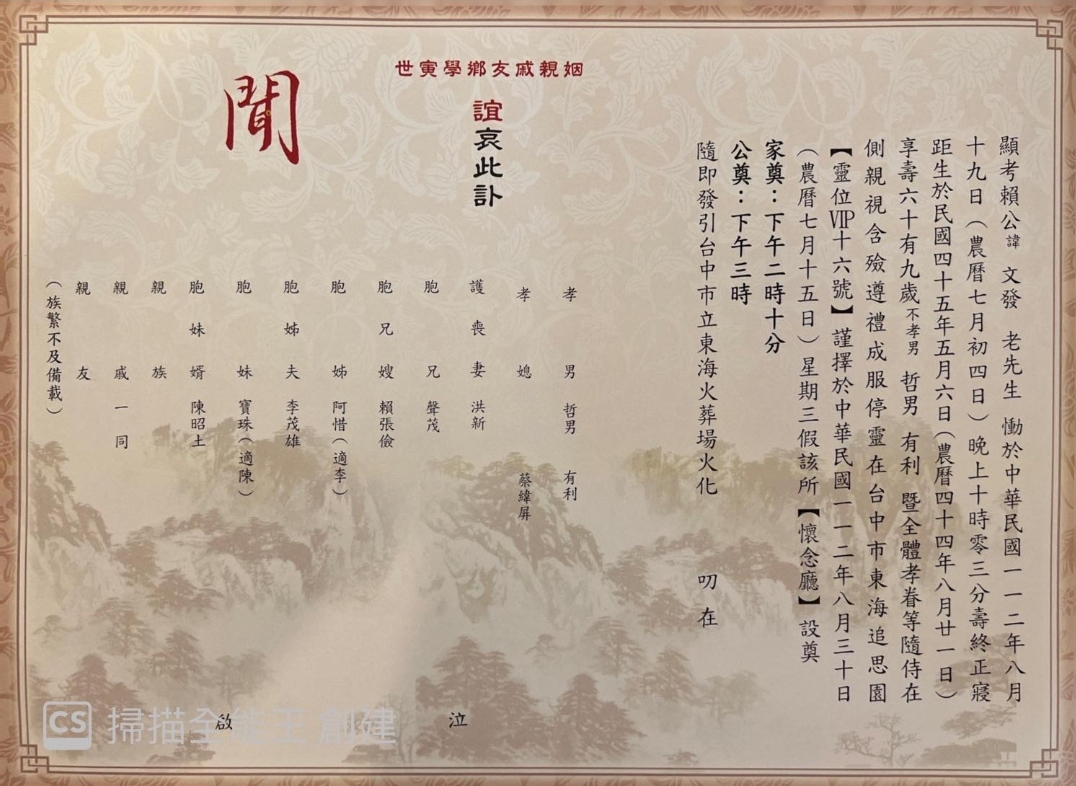 顯考賴公諱 文發 老先生 慟於中華民國一一二年八月
十九日（農曆七月初四日）晚上十時零三分壽終正寢
距生於民國四十五年五月六日（農曆四十四年八月廿一日）
享壽六十有九歲不孝男 哲男 有利 暨全體孝眷等隨侍在
側親視含殮遵禮成服停靈在台中市東海追思園
【靈位VIP十六號】謹擇於中華民國一一二年八月三十日
（農曆七月十五日）星期三假該所【懷念廳】設奠
家奠：下午二時十分
公奠：下午三時
隨即發引台中市立東海火葬場火化 叨在
姻親戚友鄉學寅世
誼哀此訃
聞
孝男 哲男 有利
孝媳 蔡緯屏
護喪妻 洪新
胞兄 聲茂
胞兄嫂 賴張儉
胞姊 阿惜（適李）
胞姊夫 李茂雄
胞妹 寶珠（適陳）
胞妹婿 陳昭土
親族
親戚一同
親友
（族繁不及備載）
泣
啟
CS 掃描全能王 創建